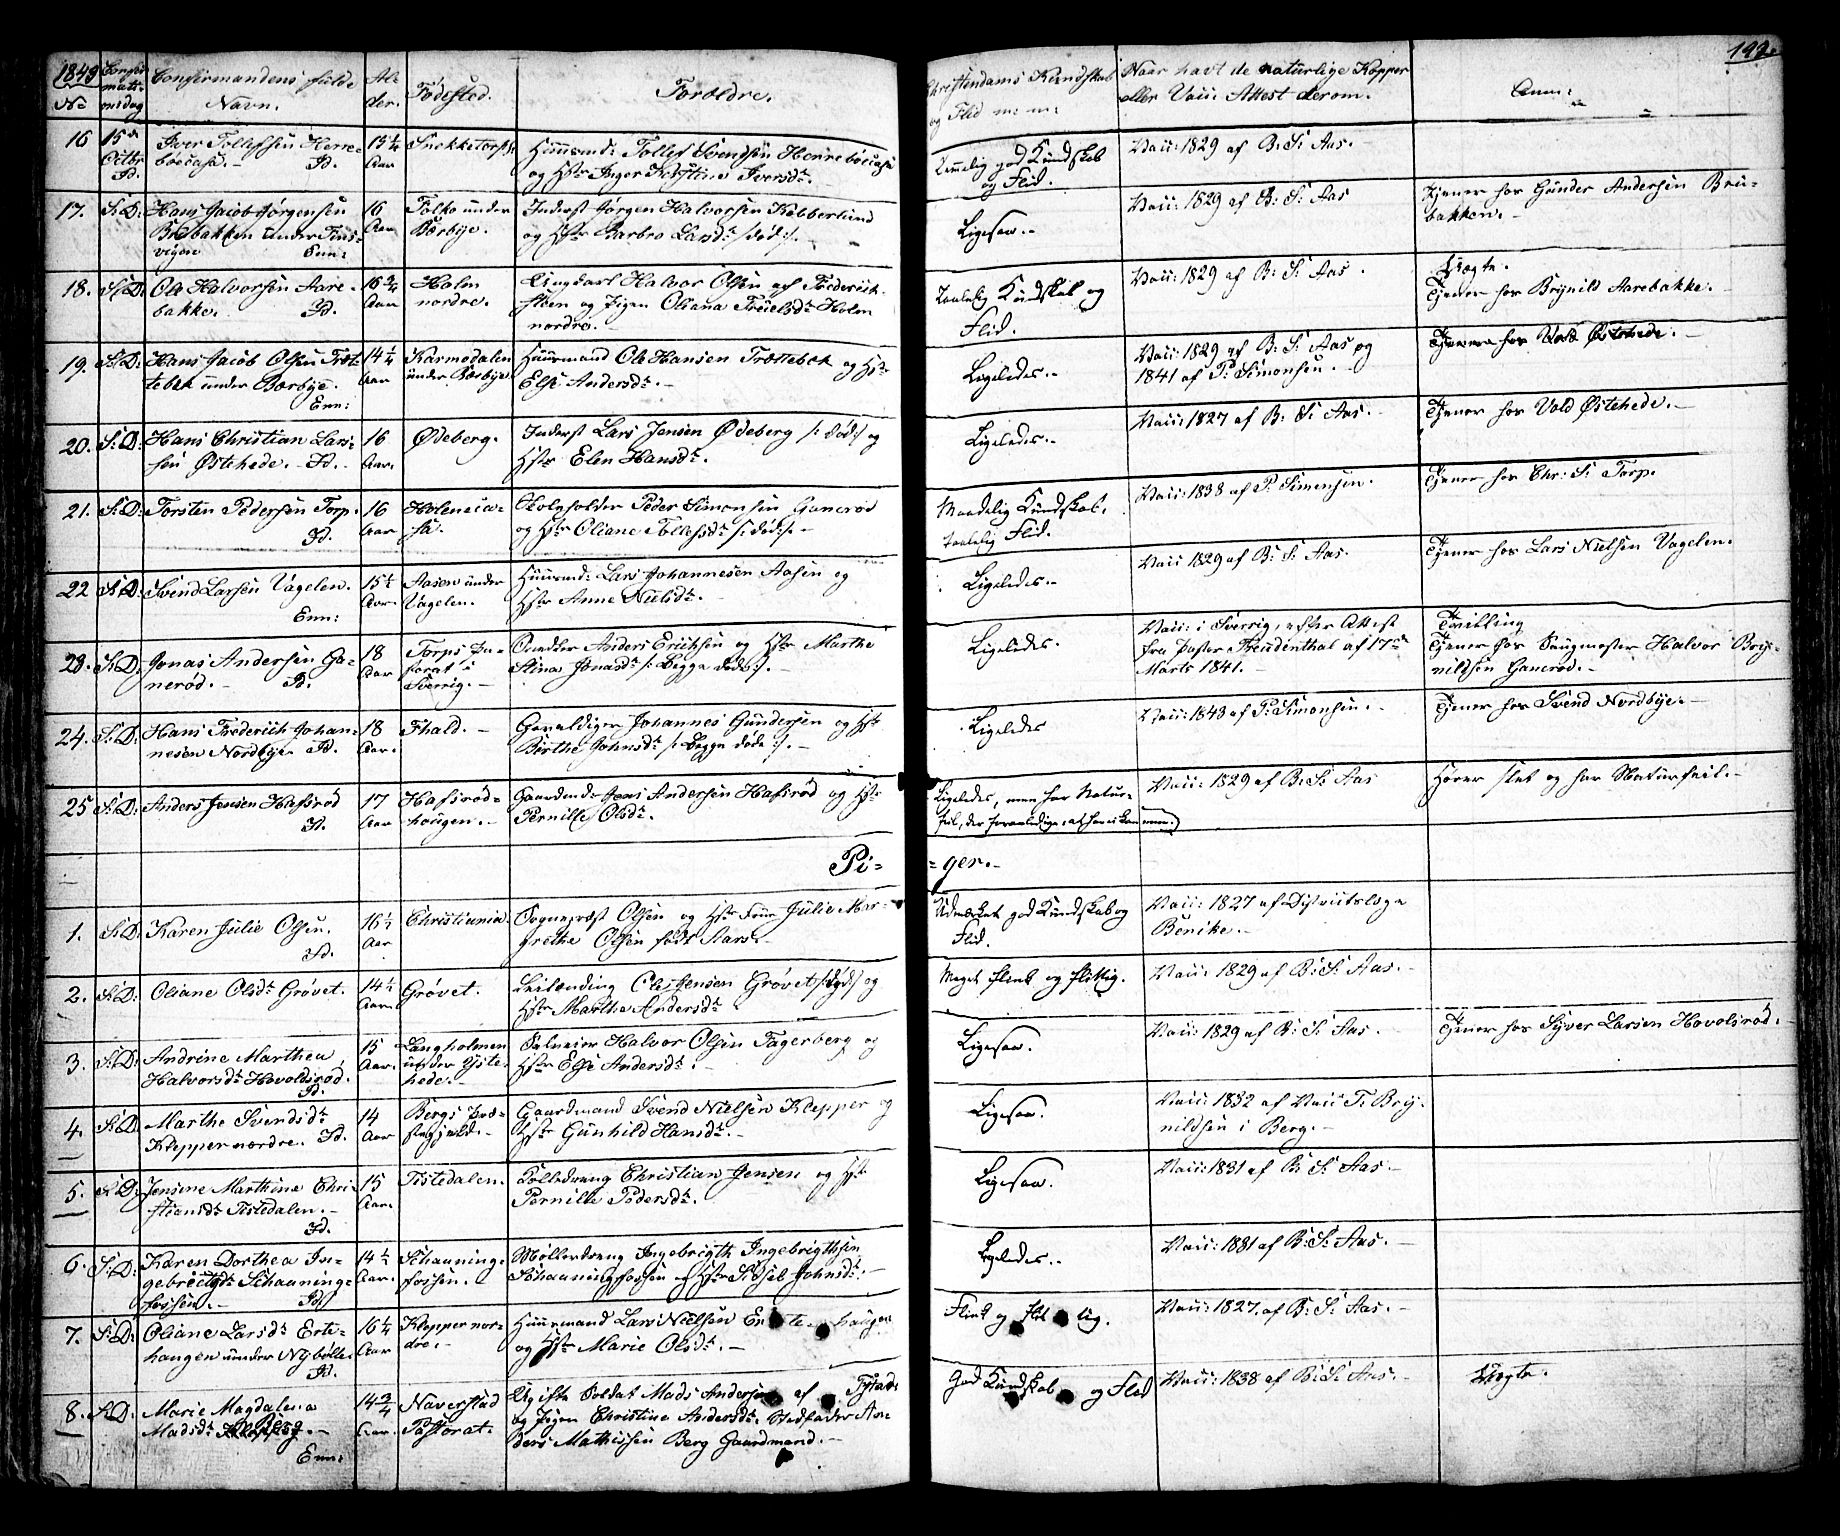 1843
199.
No
Confir-
mati-
onsdag
Confirmandens fulde
Navn.
Al-
der.
Födested.
Forældre.
Christendoms Kundskab
og Flid m: m:
Naar havt de naturlige Kopper
eller Vacc: Attest derom.
Anm:
16
15de
Octbr
Id.
Iver Tollefsen Herre-
böecasa. - Id.
15 1/4
Aar
Huusmd: Tollef Svendsen Herreböecasa
og Hstr Inger Kirstine Iversdtr. -
Temmelig god Kundskab
og Flid.
Vacc: 1829 af B: S: Aas. -
17.
S: D:
Hans Jacob Jörgensen
Brebakken under Tius-
vigen Enn:
16
Aar
Folko under
Börbye.
Inderst Jörgen Halvorsen Kebberlund
og Hstr Barbro Larsdtr /: död :/. -
Ligesaa. -
Vacc: 1829 af B: S: Aas
Tjener hos Gunder Andersen Bru-
bakken. -
18.
S: D:
Ole Halvorsen Aare-
bakke. Id.
16 3/4
Aar
Holm
nordre.
Ungkarl Halvor Olsen af Friderich-
steen og Pigen Oliana Truelsdtr Holm
nordre. -
Taalelig Kundskab og
Flid.
Vacc: 1829 af B: S: Aas.
Uægte.
Tjener hos Brynild Aarebakke. -
19.
S: D:
Hans Jacob Olsen Træt-
tebek under Börbye.
Enn:
14 1/4
Aar
Karmodalen
under Börbye
Huusmand Ole Hansen Trættebek og Hstr
Else Andersdtr. -
Ligeledes. -
Vacc: 1829 af B: S: Aas og
1841 af P: Simonsen. -
Tjener hos Vold Östehede. -
20.
S: D:
Hans Christian Lars-
sen Östehede. - Id. -
16
Aar.
Ödeberg.
Inderst Lars Jensen Ödeberg /: död :/ og
Hstr Elen Hansdtr.
Ligeledes. -
Vacc: 1827 af B: S: Aas. -
Tjener hos Vold Östehede. -
21.
S: D:
Torsten Pedersen Torp.
Id.
16
Aar
Holeneca-
sa.
Skoleholder Peder Simonsen Ganeröd
og Hstr Oliane Tollefsdtr /: död :/. -
Maadelig Kundskab.
taalelig Flid.
Vacc: 1838 af P: Simonsen.
Tjener hos Chr: S: Torp.
22
S: D:
Svend Larsen Vagelen.
Enn:
15 1/2
Aar.
Aasen under
Vagelen.
Huusmd: Lars Johannesen Aasen og
Hstr Anne Nielsdtr. -
Ligeledes. -
Vacc: 1829 af B: S: Aas.
Tjener hos Lars Nielsen Vagelen.
23.
S: D:
Jonas Andersen Ga-
neröd. - Id.
18
Aar
Torps
Sverrig. -
Anders Erichsen og Hstr Marthe
Stina Jonasdtr /: begge döde :/.
Ligeledes.
Vacc: i Sverrig, efter Attest
fra Pastor Freudenthal af 17de
Marts 1841.
Tvilling
Tjener hos Saugmester Halvor Bry-
nildsen Ganeröd. -
24.
S: D:
Hans Frederich Johan-
nesen Nordbye. Id.
18
Aar.
Fhald. -
Gevaldiger Johannes Gundersen og Hstr
Berthe Johnsdtr /: begge döde :/. -
Ligeledes
Vacc: 1843 af P: Simonsen. -
Tjener hos Svend Nordbye. -
25
S: D:
Anders Jensen Hafsröd
Id.
17
Aar
Hafsröd-
hougen. -
Gaardmd: Jens Andersen Hafsröd og Hstr
Pernille Olsdtr.
Ligeledes, men har Natur-
feil,
Vacc: 1829 af B: S: Aas
Hörer slet og har Naturfeil. -
Pi- - ger. -
1.
S: D:
Karen Julie Olsen.
Id.
16 1/2
Aar
Christiania.
Sognepræst Olsen og Hstr Frue Julie Mar-
grethe Olsen födt Aars. -
Udmærket god Kundskab og
Flid.
Vacc: 1827 af Districtslæge
Benike. -
2.
S: D:
Oliane Olsdtr Grövet.
14 1/2
Aar.
Grövet.
Leilænding Ole Jensen Grövet /: död :/ og
Hstr Marthe Andersdtr
Meget flink og flittig.
Vacc: 1829 af B: S: Aas. -
3.
S: D:
Andrine Marthea
Halvorsdtr Hovoldsröd.
Id.
15
Aar.
Langholmen
under Yste-
hede. -
Halvor Olsen Fagerberg og
Hstr Else Andersdtr. -
Ligesaa.
Vacc: 1829 af B: S: Aas. -
Tjener hos Syver Larsen Hovolsröd.
4.
S: D:
Marthe Svendsdtr
Klepper nordre. Id.
14
Aar
Bergs Præ-
stegjeld. -
Gaardmand Svend Nielsen Klepper og
Hstr Gunhild Hansdtr. -
Ligesaa.
Vacc: 1832 af Vacc: T: Bry-
nildsen i Berg. -
5.
S: D:
Jensine Marthine Chri-
stiansdtr Tistedalen. -
Id.
15
Aar.
Tistedalen.
Rolledreng Christian Jensen og Hstr
Pernille Pedersdtr.
Ligesaa.
Vacc: 1831 af B: S: Aas. -
6.
S: D:
Karen Dorthea In-
gebrictsdtr Schaaning-
fossen. - Id.
14 1/2
Aar.
Schaaning-
fossen.
Möllerdreng Ingebrigth Ingebrigthsen
Schaaningfossen og Hstr Sidsel Johnsdtr. -
Ligeledes. -
Vacc: 1831 af B: S: Aas. -
7.
S: D:
Oliane Larsdtr Erte-
haugen under Nybölle.
Id.
16 1/4
Aar
Klepper nor-
dre. -
Huusmand Lars Nielsen Ertehaugen
og Hstr Marie Olsdtr. -
Flink og flittig.
Vacc: 1827. af B: S: Aas. -
8.
S: D.
Marie Magdalena
Madsdtr Berg. -
Enn:
14 3/4
Aar.
Naverstad
Pastorat.
Ugift Soldat Mads Andersen af
og Pigen Christine Andersdtr. Stedfader An-
ders Mathissen Berg Gaardmand. -
God Kundskab og Flid
Vacc: 1838 af B: S: Aas. -
Uægte.